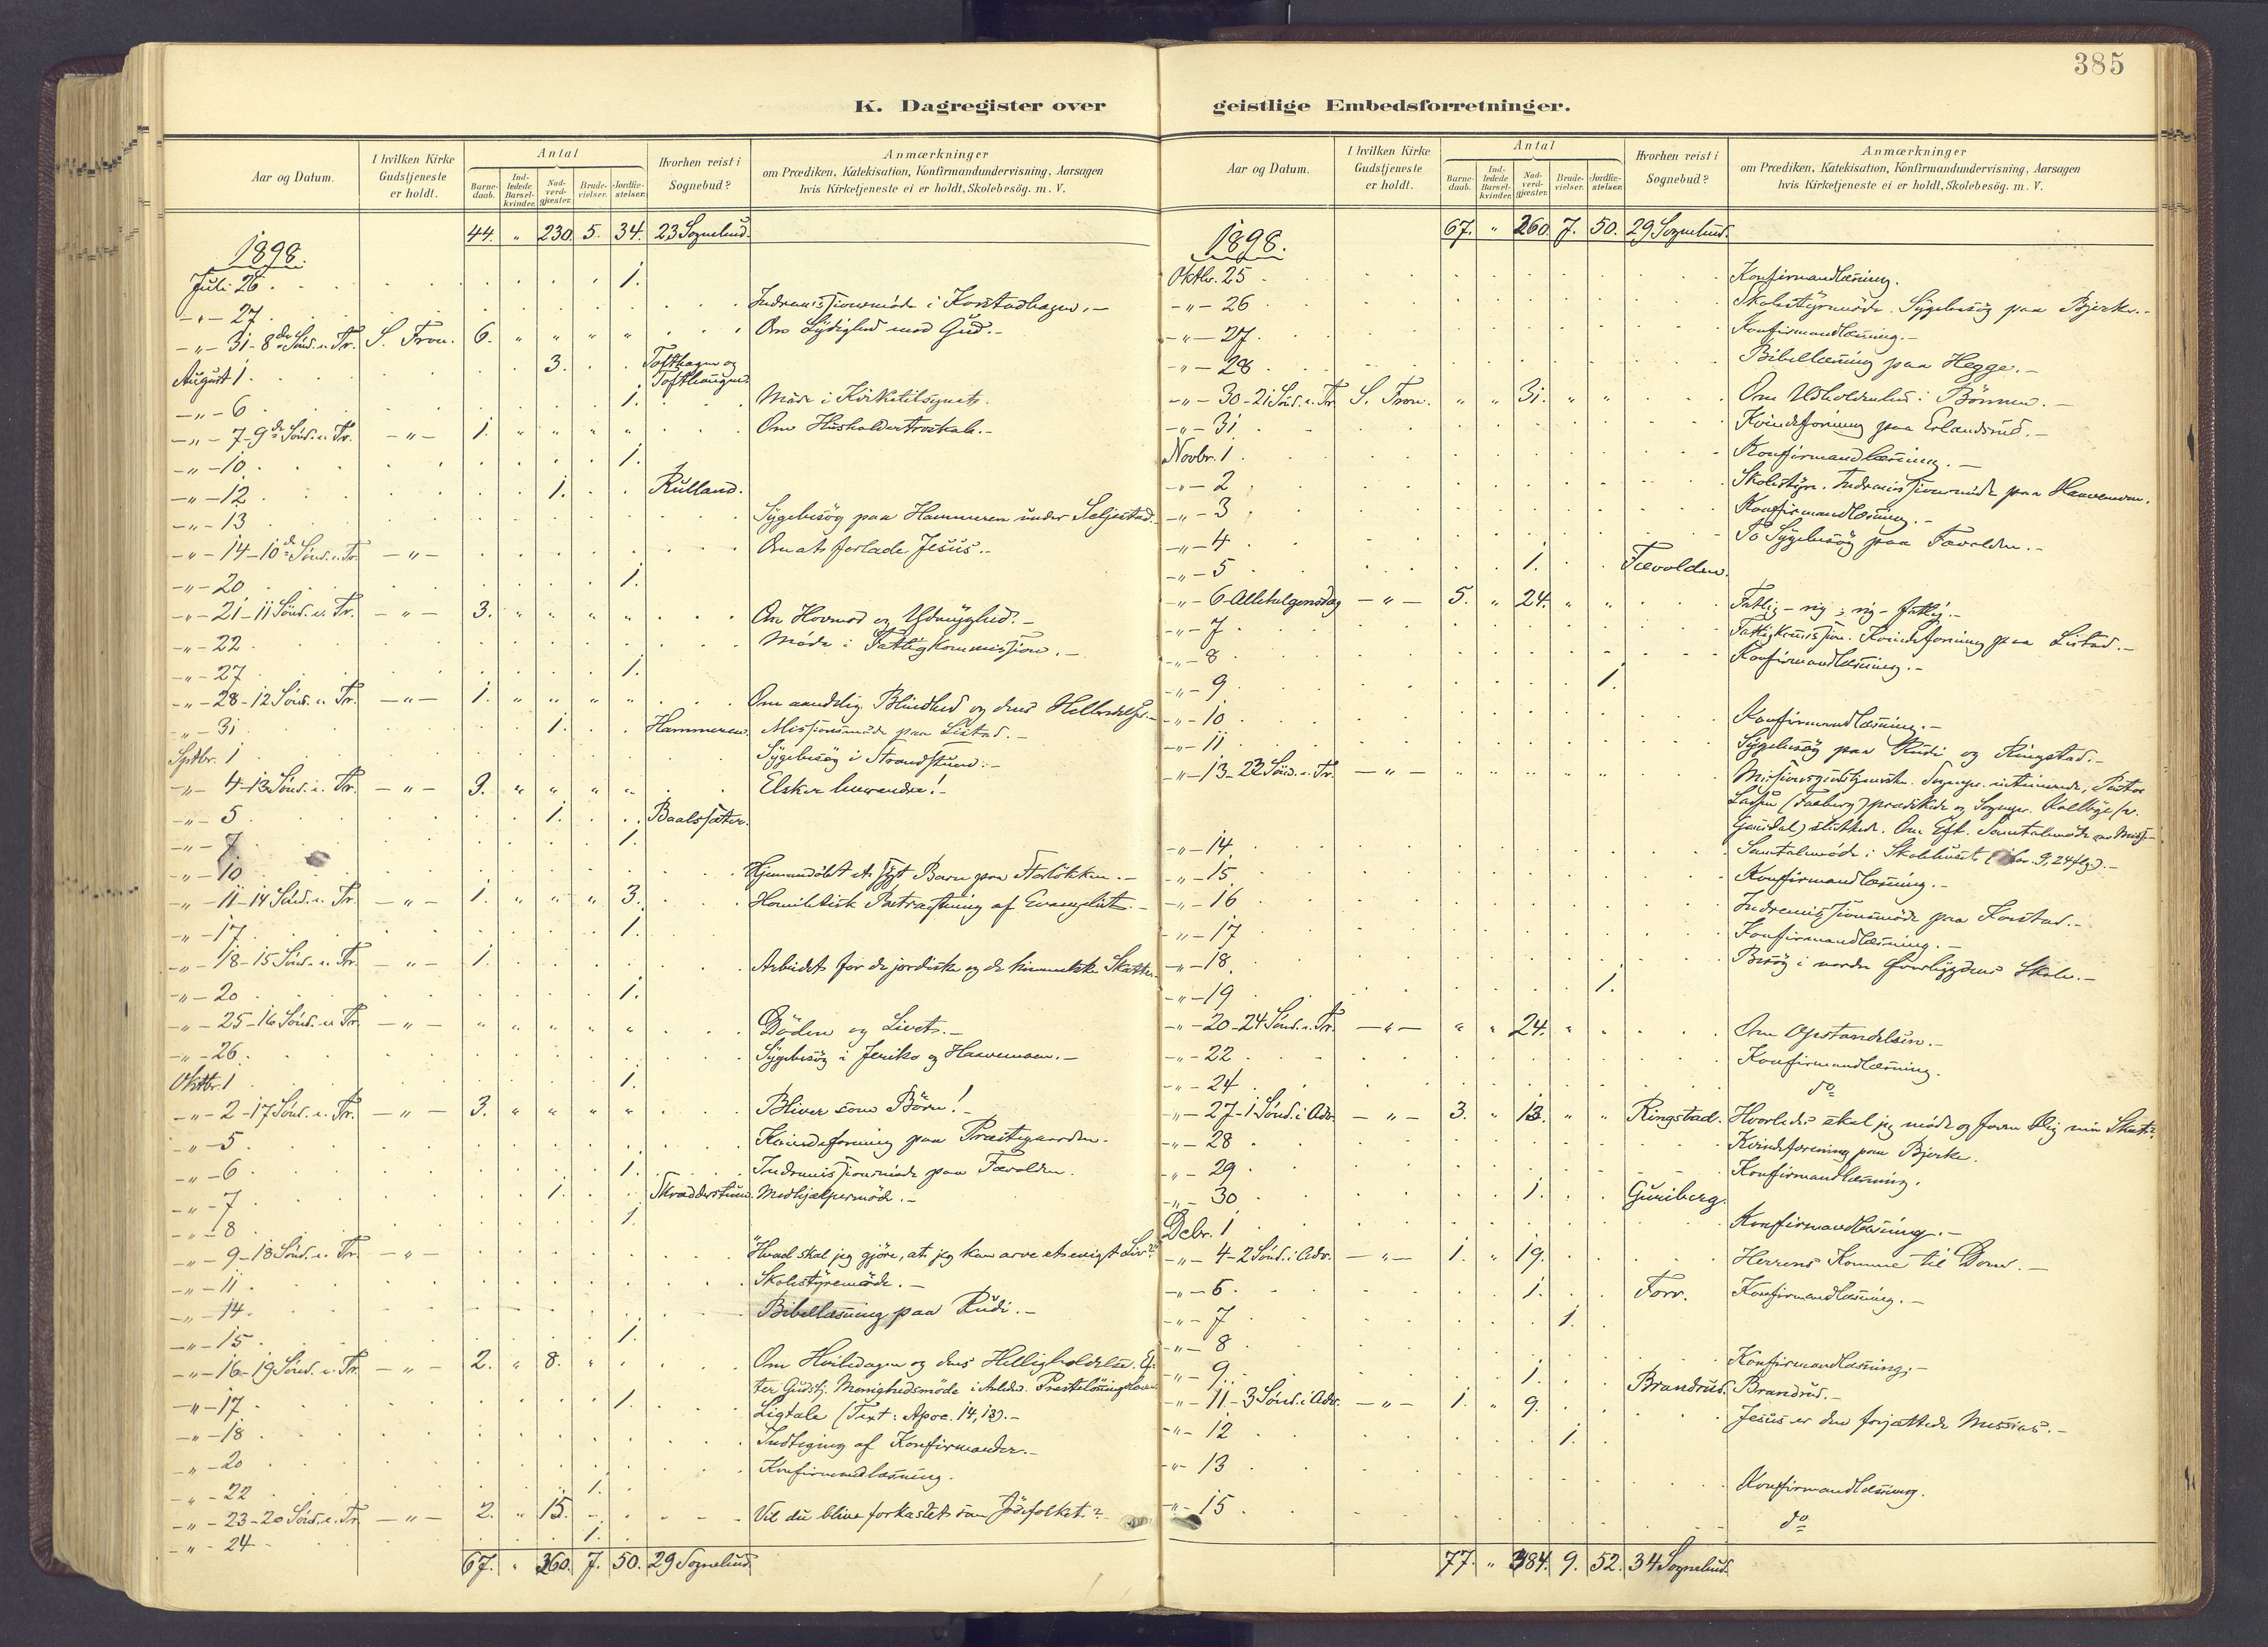 385
K. Dagregister over geistlige Embedsforretninger.
Aar og Datum. I hvilken Kirke Gudstjeneste er holdt. Antal Barnedaab. Indledede Barselkvinder. Nadverdgjæster. Brudevielser. Jordfæstelser. Hvorhen reist i Sognebud? Anmærkninger om Prædiken, Katekisation, Konfirmandundervisning, Aarsagen hvis Kirketjeneste ei er holdt, Skolebesög. m. V.
44. " 230. 5. 34. 23 Sognebud.
1898.
Juli 26. 1.
-"- 27. Indremissionsmøde i Korstadhagen.-
-"- 31-8de Sönd. e. Tr. S. Fron. 6. " " " " Om Lydighed mod Gud.-
August 1. 3. Tofthagen og Tofthaugen.
-"- 6. 1. Møde i Kirketilsynet.
-"- 7-9de Sönd. e. Tr. -"- 1. " " " " Om Husholdertroskab.-
-"- 10. 1.
-"- 12. 1. Rulland.
-"- 13. Sygebesög paa Hammeren under Seljestad.-
-"- 14-10de Sönd. e. Tr. -"- Om at forlade Jesus.-
-"- 20. 1.
-"- 21-11 Sönd. e. Tr. -"- 3. " " " " Om Hovmod og Ydmyghed.-
-"- 22. Møde i Fattigkommission.-
-"- 27. 1.
-"- 28-12 Sönd. e. Tr. -"- 1. " " " " Om aandelig Blindhed og dens Helbredelse.-
-"- 31. 1. Hammeren. Missionsmøde paa Listad.-
Septbr. 1. Sygebesög i Strandstuen.-
-"- 4-13 Sönd. e. Tr. -"- 3. " " " " Elsker hverandre!-
-"- 5. 1. Baalsæter.
-"- 7. 1.
-"- 10. Hjemmedöbt et sygt Barn paa
-"- 11-14 Sönd. e. Tr. -"- 1. " " " 3. Homiletisk Betragtning af Evangeliet.-
-"- 17. 1.
-"- 18-15 Sönd. e. Tr. -"- 1. Arbeidet for de jordiske og de himmelske Skatter.
-"- 20. 1.
-"- 25-16 Sönd. e. Tr. -"- " " " " " Döden og Livet.-
-"- 26. Sygebesög i Jeriko og Haavemoen.-
Oktbr. 1. 1.
-"- 2-17 Sönd. e. Tr. -"- 3. " " " " Bliver som Börn!-
-"- 5. Kvindeforening paa Præstegaarden.
-"- 6. 1. Indremissionsmøde paa Fævolden.
-"- 7. 1. Skrædderstuen. Medhjælpermøde.-
-"- 8. 1.
-"- 9-18 Sönd. e. Tr. -"- "Hvad skal jeg gjöre, at jeg kan arve et evigt Liv?"
-"- 11. Skolestyremøde.-
-"- 14. Bibellæsning paa Rudi.-
-"- 15. 1.
-"- 16-19 Sönd. e. Tr. -"- 2. " 8. " Om Hviledagen og dens Helligholdelse. Ef-
ter Gudstj. Menighedsmøde i Anledn. Prestelönningsloven
-"- 17. 1. Ligtale (Text: Apoc. 14, 13).-
-"- 18. Indtegning af Konfirmander.-
-"- 20. Konfirmandlæsning.
-"- 22. 1.
-"- 23-20 Sönd. e. Tr. -"- 2. " 15. Vil du blive forkastet som Jödefolket?-
-"- 24. 1.
67. " 260. 7. 50. 29 Sognebud.
Aar og Datum. I hvilken Kirke Gudstjeneste er holdt. Antal Barnedaab. Indledede Barselkvinder. Nadverdgjæster. Brudevielser. Jordfæstelser. Hvorhen reist i Sognebud? Anmærkninger om Prædiken, Katekisation, Konfirmandundervisning, Aarsagen hvis Kirketjeneste ei er holdt, Skolebesög. m. V.
67. " 260. 7. 50. 29 Sognebud.
1898.
Oktbr. 25. Konfirmandlæsning.
-"- 26 Skolestyremøde. Sygebesög paa Bjerke.-
-"- 27. Konfirmandlæsning.-
-"- 28 Bibellæsning paa Hegge.-
-"- 30-21 Sönd. e. Tr. S. Fron. " " 31. " " Om Udholdenhed i Bönnen.-
-"- 31 Kvindeforening paa Erlandsrud.-
Novbr. 1. Konfirmandlæsning.-
-"- 2 Skolestyre. Indremissionsmøde paa Haavemoen.
-"- 3 Konfirmandlæsning.-
-"- 4 To Sygebesög paa Fævolden.-
-"- 5 1. Fævolden.
-"- 6 Allehelgensdag -"- 5. " 24. " " Fattig - rig; rig - fattig.-
-"- 7. Fattigkommission. Kvindeforening paa Listad.-
-"- 8 Konfirmandlæsning.-
-"- 9 1.
-"- 10 Konfirmandlæsning.-
-"- 11 Sygebesög paa Rudi og Ringstad.-
-"- 13-23 Sönd. e. Tr. -"- " " " " " Missionsgudstjeneste. Sognepr. intimerede, Pastor
(Faaberg) prædikede og Sognepr.
Gausdal) sluttede. Om Eft. Samtalemøde om Miss.-
-"- 14 Samtalemøde i Skolehuset (1 Cor. 9, 24 flg.).-
-"- 15 Konfirmandlæsning.-
-"- 16 Indremissionsmøde paa Korstad.-
-"- 17 Konfirmandlæsning.-
-"- 18 Besög i nordre Skole.-
-"- 19 1.
-"- 20-24 Sönd. e. Tr. -"- " " 24. " Om Opstandelsen.-
-"- 22 Konfirmandlæsning.
-"- 24 do
-"- 27-1 Sönd. i Adv. -"- 3. " 13. " " Ringstad. Hvorledes skal jeg møde og favne Dig min Skat?
-"- 28 Kvindeforening paa Bjerke.
-"- 29 Konfirmandlæsning.
-"- 30 1. Guriberg.
Debr. 1 Konfirmandlæsning.-
-"- 4-2 Sönd. i Adv. -"- 1. " 19. Herrens Komme til Dom.-
-"- 5. 1. Forr. Konfirmandlæsning.-
-"- 7 1.
-"- 8 Konfirmandlæsning.-
-"- 9. 1. Brandrud. Brandrud.-
-"- 11-3 Sönd. i Adv. -"- 1. " 9. Jesus er den forjættede Messias.-
-"- 12 1.
-"- 13 Konfirmandlæsning.
-"- 15. do
77. " 384. 9. 52. 34 Sognebud.